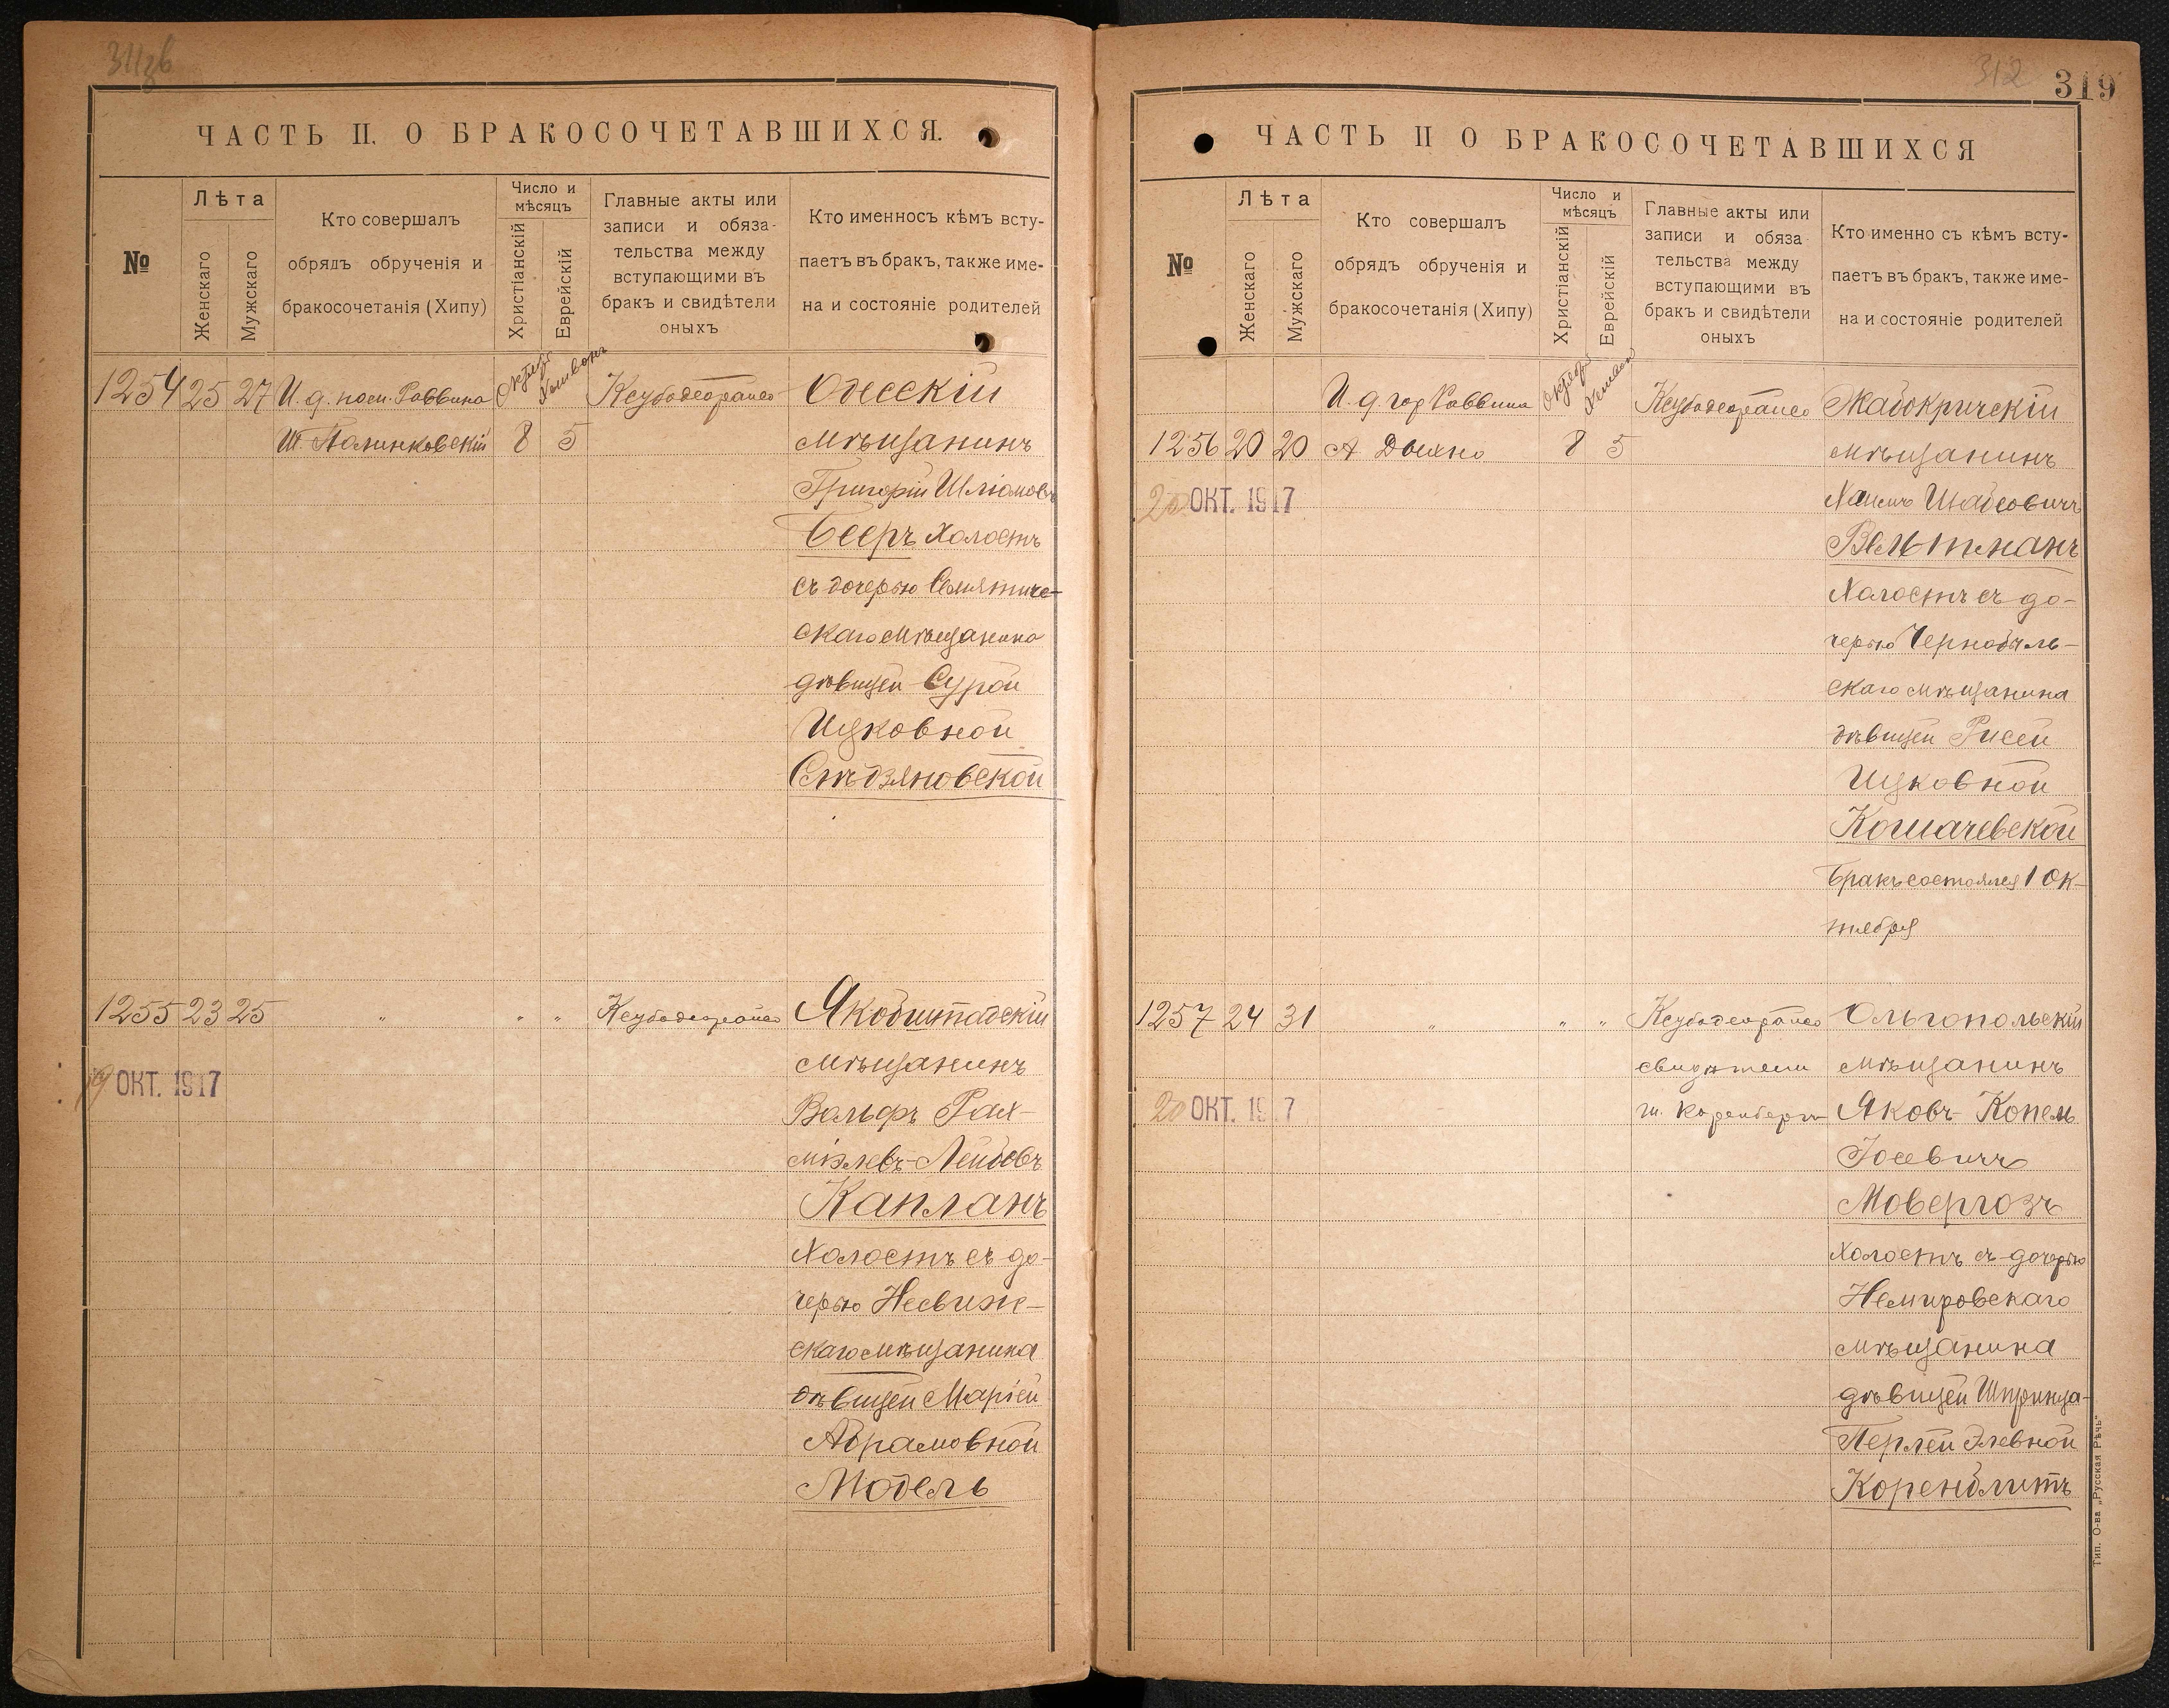 ЧАСТЬ II. О БРАКОСОЧЕТАВШИХСЯ.
№
Лѣта
Женскаго
Мужскаго
Кто совершалъ
обрядъ обрученія и
бракосочетанія (Хипу)
Число и
мѣсяцъ
Христіанскій
Еврейскій
Главные акты или
записи и обяза-
тельства между
вступающими въ
бракъ и свидѣтели
оныхъ
Кто именносъ кѣмъ всту-
паетъ въ бракъ, также име-
на и состояніе родителей
1254 25 27 И. д. пом. Раввина
Одесскій
8 5 мѣщанинъ
Григорій Шліомовъ
Бееръ холостъ
съ дочерью Семятиче-
скаго мѣщанина
дѣвицей Сурой
Ицковной
Смѣдзяновской
1255 23 25 " " " Якобштадскій
19 ОКТ. 1917
мѣщанинъ
Вольфъ Рах-
міэлевъ-Лейбовъ
Капланъ
холостъ съ до-
черью Несвиж-
скаго мѣщанина
дѣвицей Маріей
Абрамовной
Модель
312
319
ЧАСТЬ II О БРАКОСОЧЕТАВШИХСЯ
№
Лѣта
Женскаго
Мужскаго
Кто совершалъ
обрядъ обрученія и
бракосочетанія (Хипу)
Число и
мѣсяцъ
Христіанскій
Еврейскій
Главные акты или
записи и обяза
тельства между
вступающими въ
бракъ и свидѣтели
оныхъ
Кто именно съ кѣмъ всту-
паетъ въ бракъ, также име-
на и состояніе родителей
И. д. гор Раввина
Жабокричскій
1256 20 20 А Дыхно 8 5 мѣщанинъ
20 ОКТ. 1917
Хаимъ Шабсовичъ
Вельтманъ
холостъ съ до-
черью Чернобыль-
скаго мѣщанина
дѣвицей Рисей
Ицковной
Кошачевской
Бракъ состоялся 1 Ок-
тября
1257 24 31 " " " Ольгопольскій
свидѣтели мѣщанинъ
20 ОКТ. 1917
Яковъ-Копель
Іосевичъ
Мовергозъ
холостъ съ дочерью
Немировскаго
мѣщанина
дѣвицей Шпринца-
Перлей Элевной
Коренблитъ
Тип. О-ва „Русская Рѣчь"